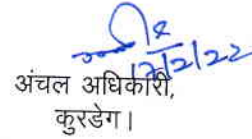 17/2/22
अंचल अधिकारी,
कुरडेग।